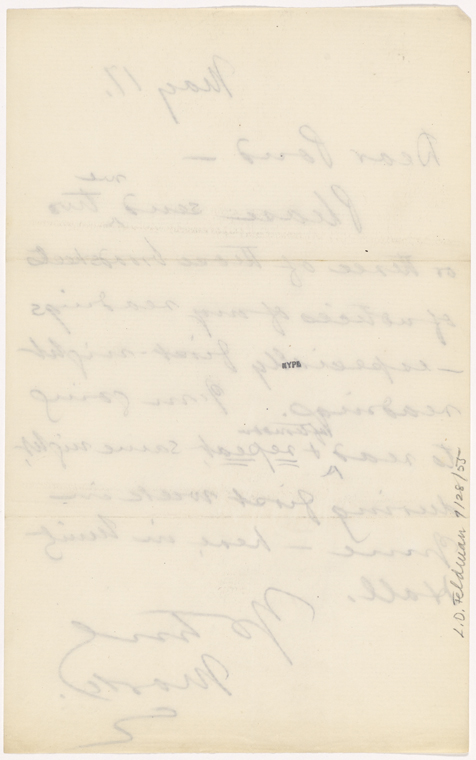 May 17.
Dear Pond —
Please send me two
or three of those broadsides
of notices of my readings
— especially first-night
readings. I'm going
to read & repeat, same night,
during first week in
June — here, in Unity
Hall.
Yrs Truly
Mark.
HYPE
L.D. Feldman 9/28/55-